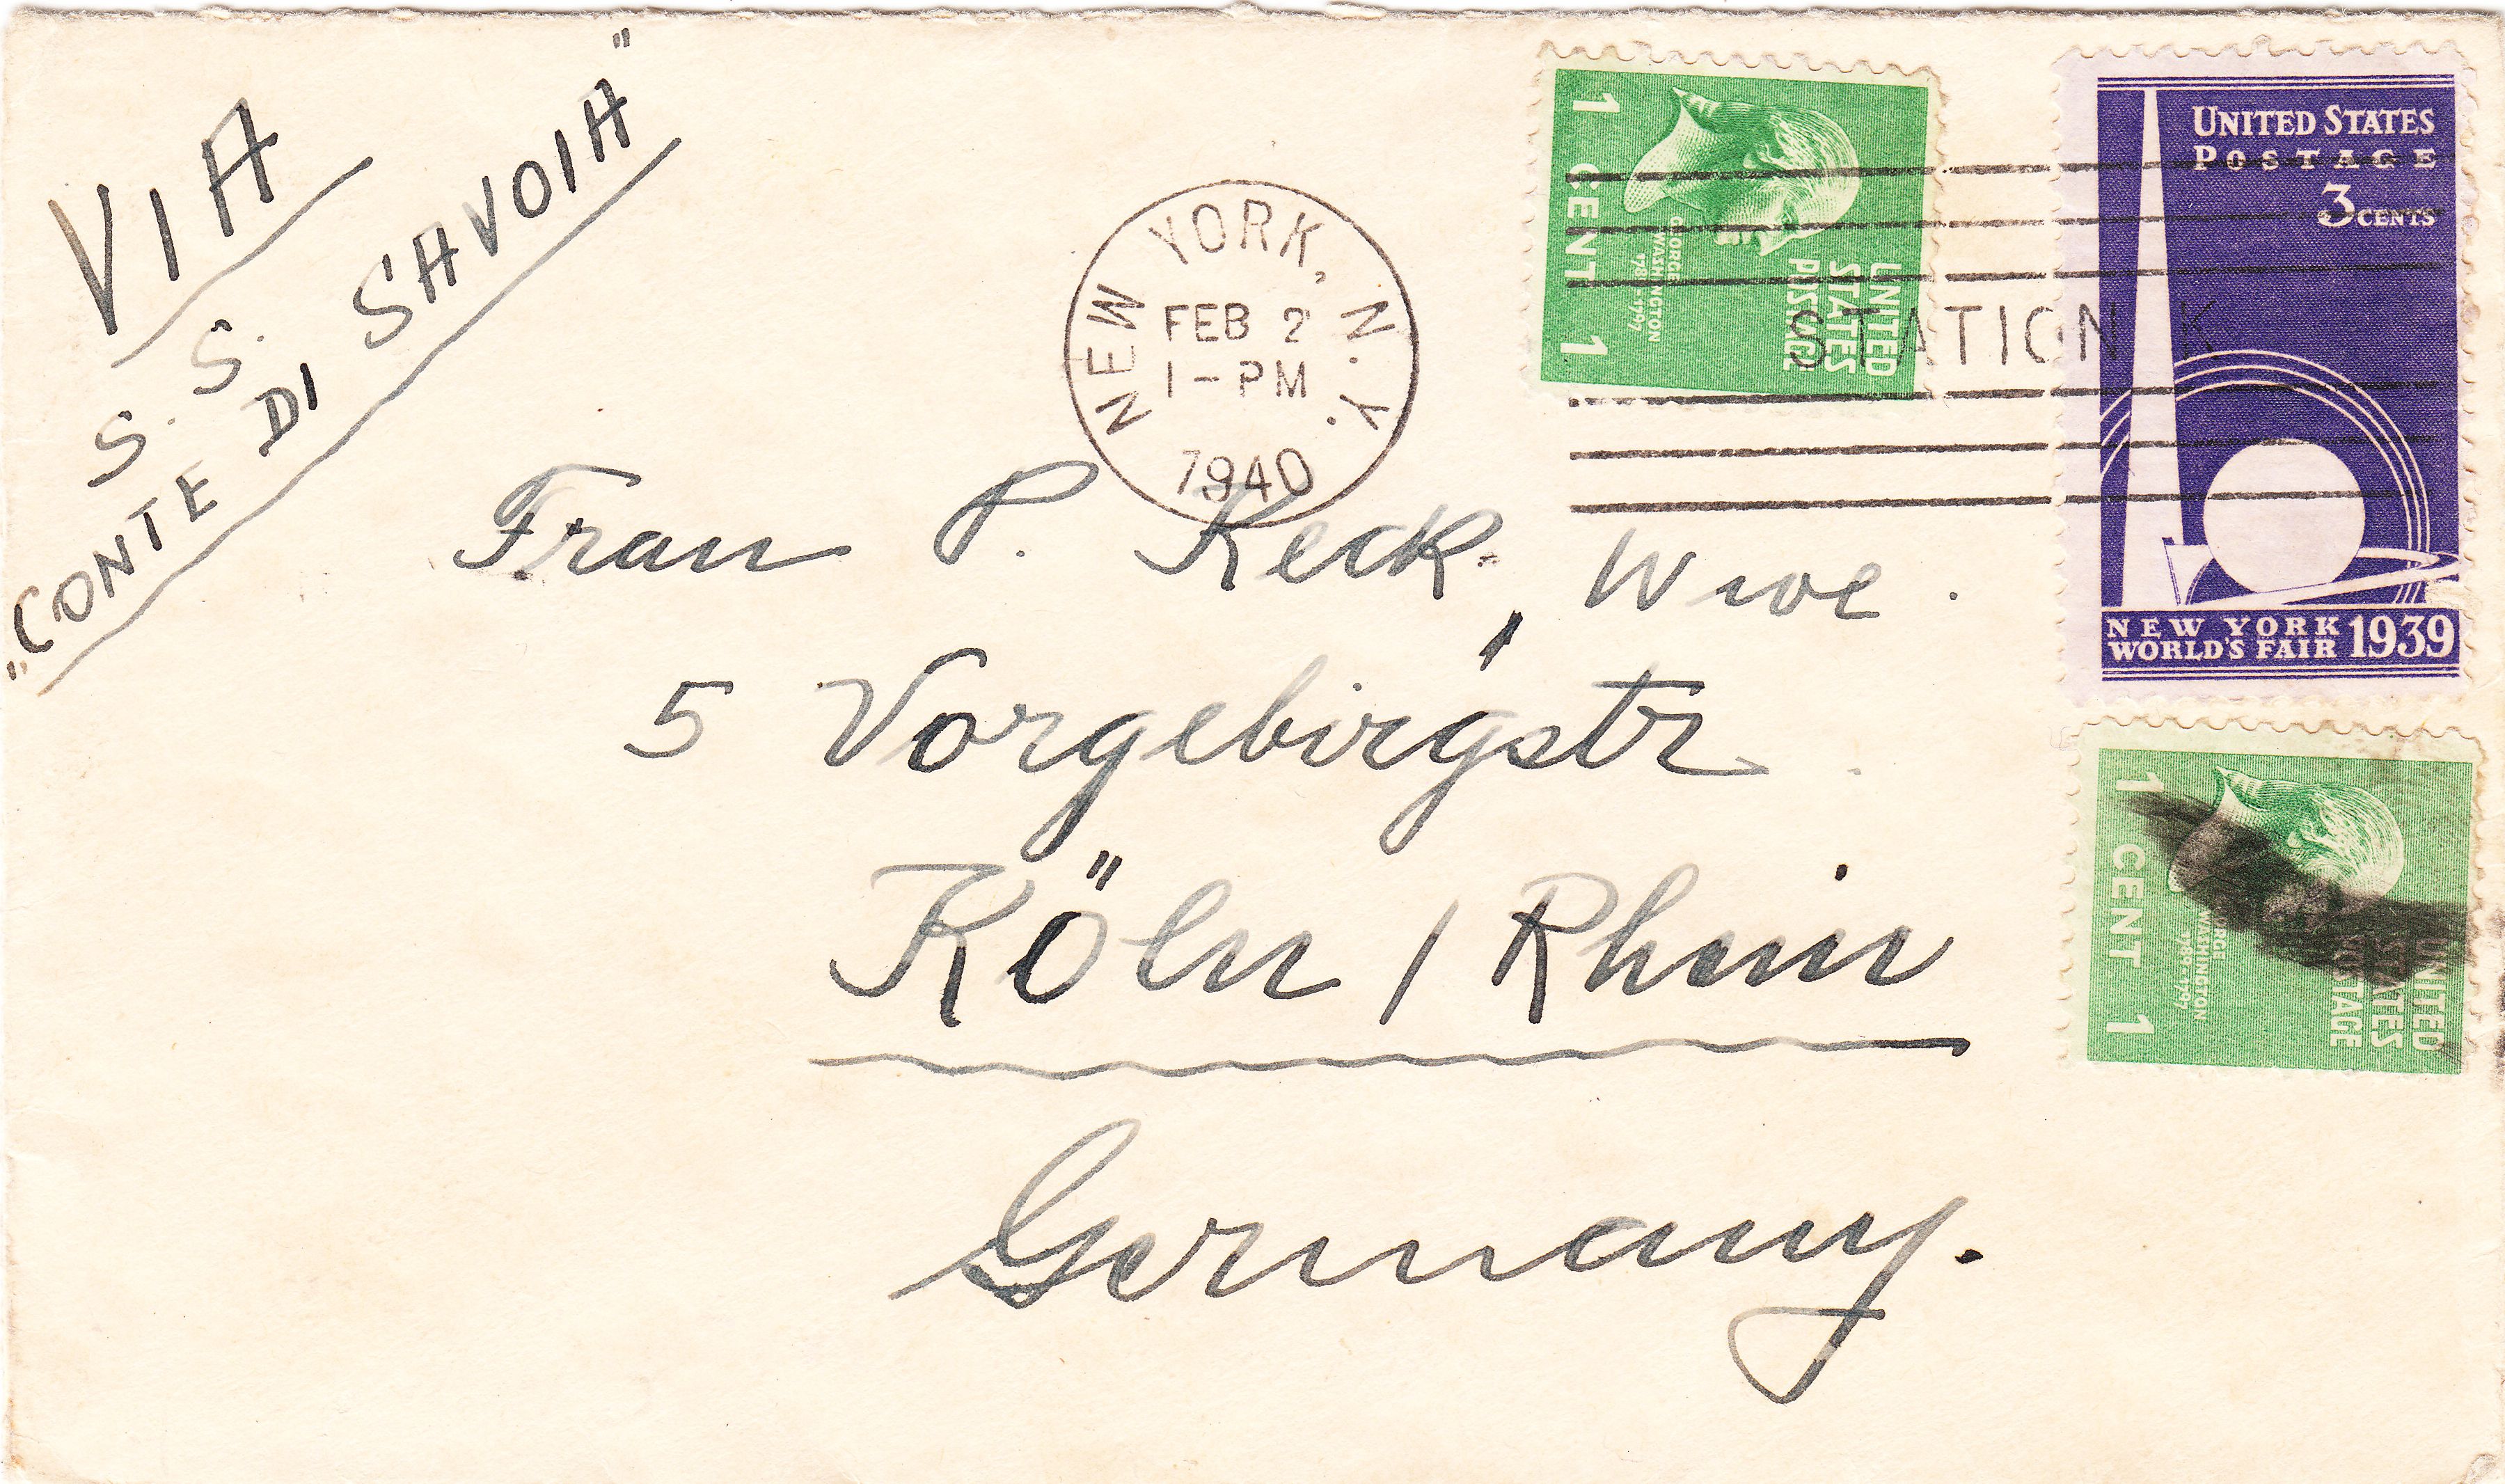 VIA
S. S.
"CONTE DI SAVOIA"
NEW YORK, N.Y.
FEB 2
1-PM
1940
STATION K
1 CENT 1
GEORGE WASHINGTON
1789-1797
UNITED
STATES
POSTAGE
UNITED STATES
POSTAGE
3 CENTS
NEW YORK
WORLD'S FAIR 1939
Frau P. Keck, Wwe.
5 Vorgebirgstr
Köln / Rhein
Germany.
1 CENT 1
GEORGE WASHINGTON
1789-1797
UNITED
STATES
POSTAGE